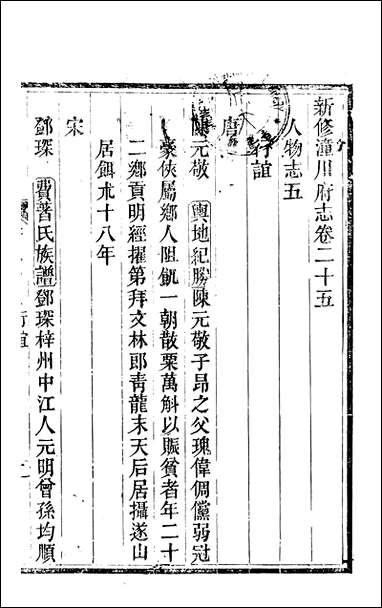 新修潼川府志卷二十五
人物志五
行誼
唐
陳元敬　輿地紀勝陳元敬子昂之父瑰偉倜儻弱冠
豪俠屬鄉人阻飢一朝散粟萬斛以賑貧者年二十
二鄉貢明經擢第拜文林郎青龍末天后居攝遂山
居餌朮十八年
宋
鄧琛　費著氏族譜鄧琛梓州中江人元明曾孫均順
行誼